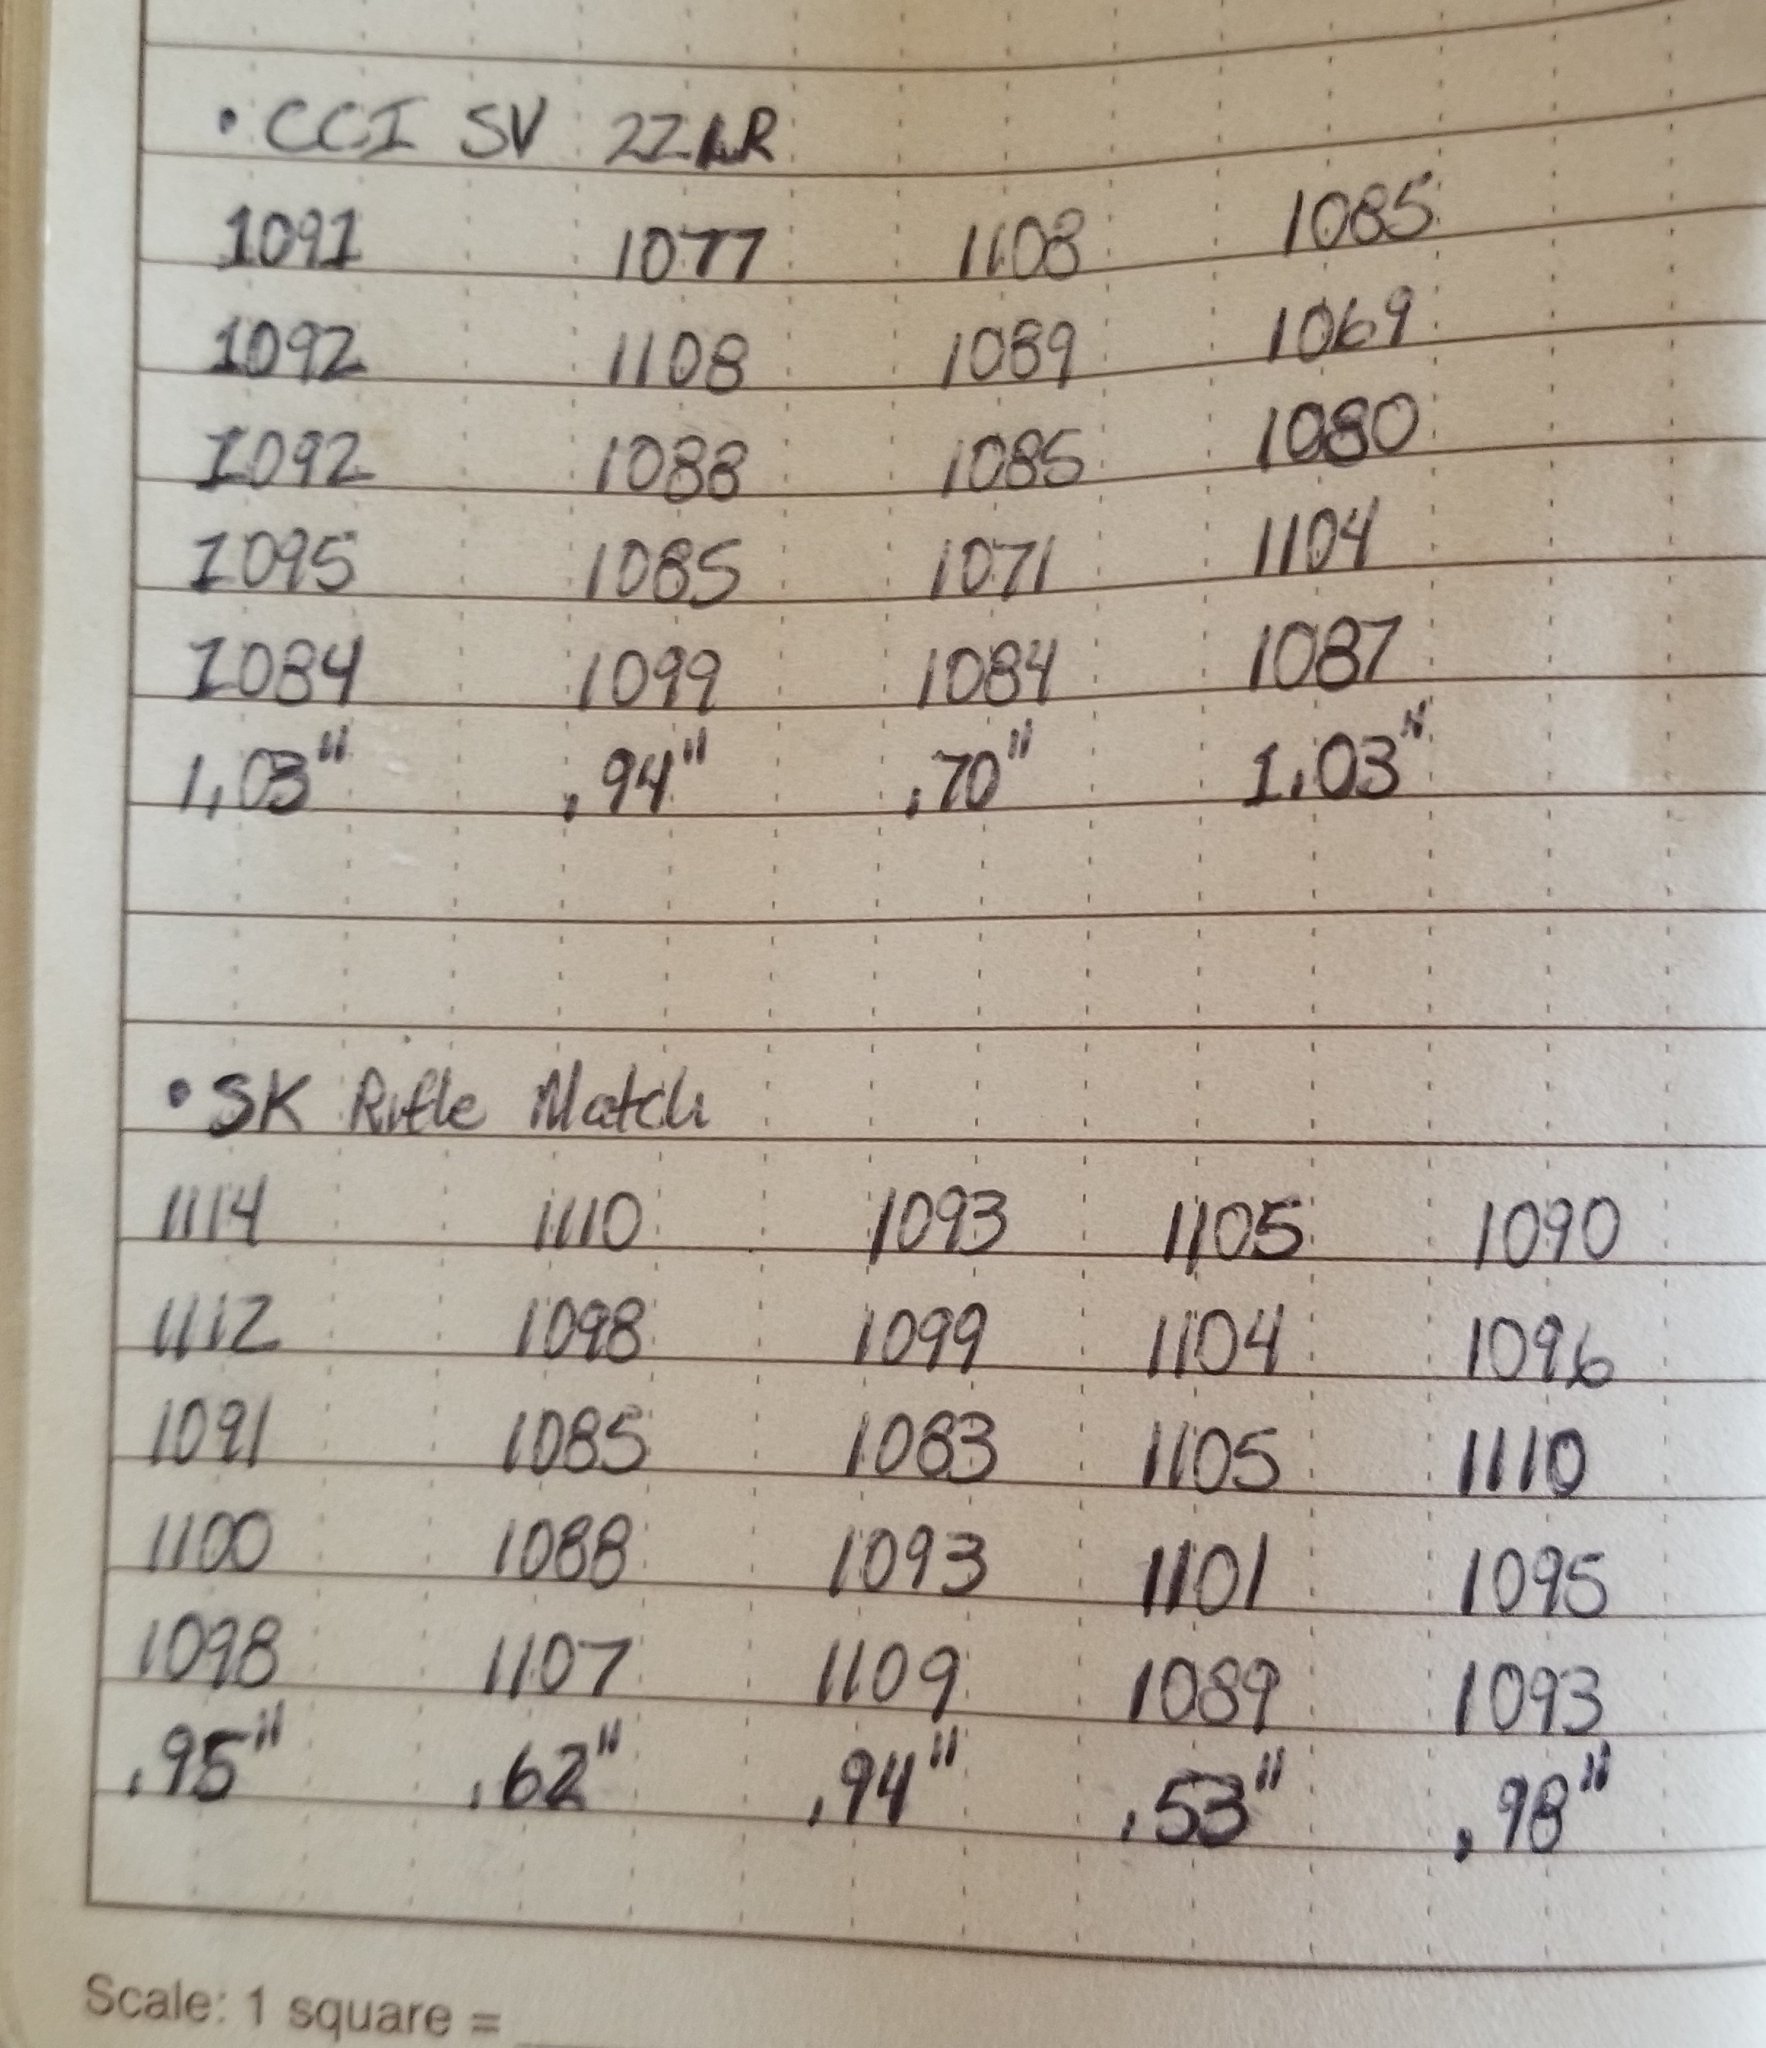 • CCI SV 22LR
1091 1077 1108 1085
1092 1108 1089 1069
1092 1088 1085 1080
1095 1085 1071 1104
1084 1099 1084 1087
1.03" .94" .70" 1.03"
• SK Rifle Match
1114 1110 1093 1105 1090
1112 1098 1099 1104 1096
1091 1085 1083 1105 1110
1100 1088 1093 1101 1095
1098 1107 1109 1089 1093
.95" .62" .94" .53" .98"
Scale: 1 square =